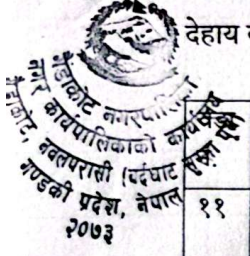 देहाय
गैंडाकोट नगरपालिका
नगर कार्यपालिकाको कार्यालय
गैंडाकोट, नवलपरासी (बर्दघाट सुस्ता पूर्व)
गण्डकी प्रदेश, नेपाल
२०७३
११